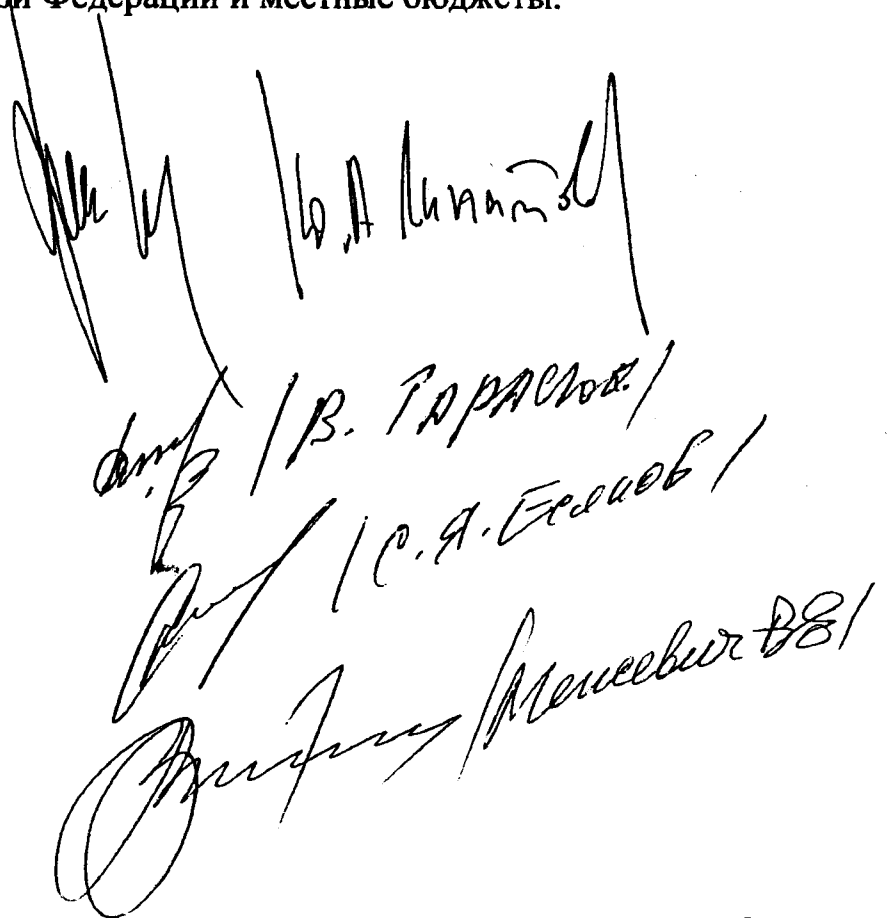 Федерации и местные бюджеты.
Ю.А Липатов
/В. ТАРАСЮК/
/С.Я. Есяков/
/Межевич ВЕ/